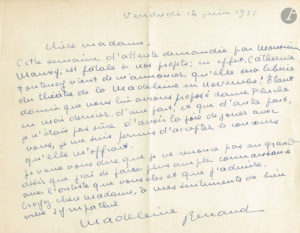 Vendredi 14 juin 1951
Chère madame.
Cette semaine d'attente demandée par Monsieur
est fatale à nos projets: en effet, Catherine
Fontenay vient de m'annoncer qu'elle sera libérée
du théâtre de la Madeleine en Novembre! Étant
donné que nous lui avions proposé dame Pluche
en mai dernier, d'une part, et que d'autre part,
je n'étais pas sûre d'avoir la joie de jouer avec
vous, je me suis permis d'accepter le concours
qu'elle m'offrait.
Je veux vous dire que je ne renonce pas au grand
désir que j'ai de faire plus ample connaissance
avec l'artiste que vous êtes et que j'admire.
Croyez, chère madame, à mes sentiments de bien
vive sympathie
Madeleine Renaud